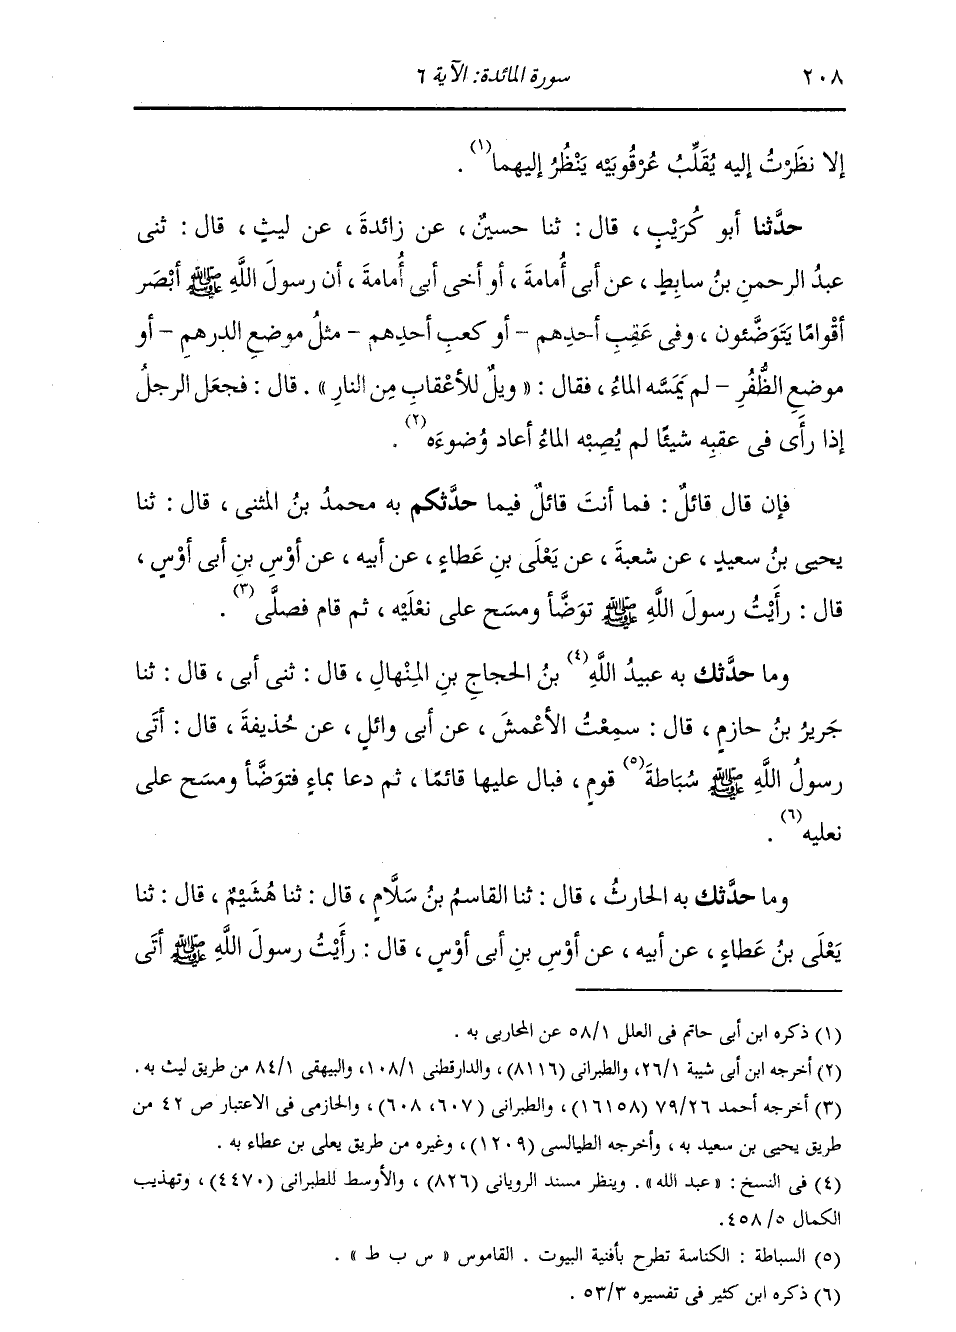 ٢٠٨ سورة المائدة: الآية ٦
إلا نظَرْتُ إليه يُقَلِّبُ عُرْقُوبَيْه يَنْظُرُ إليهما(١) .
حدَّثنا أبو كُرَيْبٍ ، قال : ثنا حسينٌ ، عن زائدةَ ، عن ليثٍ ، قال : ثنى
عبدُ الرحمنِ بنُ سابِطٍ ، عن أبى أُمامةَ ، أو أخى أبى أُمامةَ ، أن رسولَ اللَّهِ ﷺ أبْصَر
أقْوامًا يَتَوَضَّئون ، وفى عَقِبِ أحدِهم – أو كعبِ أحدِهم – مثلُ موضعِ الدرهمِ – أو
موضعِ الظُّفُرِ – لم يَمَسَّه الماءُ ، فقال : « ويلٌ للأعْقابِ مِن النارِ » . قال : فجعَل الرجلُ
إذا رأَى فى عقبِه شيئًا لم يُصِبْه الماءُ أعاد وُضوءَه(٢) .
فإن قال قائلٌ : فما أنتَ قائلٌ فيما حدَّثكم به محمدُ بنُ المثنى ، قال : ثنا
يحيى بنُ سعيدٍ ، عن شعبةَ ، عن يَعْلَى بنِ عَطاءٍ ، عن أبيه ، عن أوْسِ بنِ أبى أوْسٍ ،
قال : رأَيْتُ رسولَ اللَّهِ ﷺ توَضَّأ ومسَح على نعْلَيْه ، ثم قام فصلَّى(٣) .
وما حدَّثك به عبيدُ اللَّهِ(٤) بنُ الحجاجِ بنِ المِنْهالِ ، قال : ثنى أبى ، قال : ثنا
جَريرُ بنُ حازمٍ ، قال : سمِعْتُ الأعْمشَ ، عن أبى وائلٍ ، عن حُذيفةَ ، قال : أتَى
رسولُ اللَّهِ ﷺ سُبَاطةَ(٥) قومٍ ، فبال عليها قائمًا ، ثم دعا بماءٍ فتوَضَّأ ومسَح على
نعليه(٦) .
وما حدَّثك به الحارثُ ، قال : ثنا القاسمُ بنُ سَلَّامٍ ، قال : ثنا هُشَيْمٌ ، قال : ثنا
يَعْلَى بنُ عَطاءٍ ، عن أبيه ، عن أوْسِ بنِ أبى أوْسٍ ، قال : رأَيْتُ رسولَ اللَّهِ ﷺ أتَى
(١) ذكره ابن أبى حاتم فى العلل ٥٨/١ عن المحاربى به .
(٢) أخرجه ابن أبى شيبة ٢٦/١، والطبرانى (٨١١٦) ، والدارقطنى ١٠٨/١، والبيهقى ٨٤/١ من طريق ليث به .
(٣) أخرجه أحمد ٧٩/٢٦ (١٦١٥٨) ، والطبرانى (٦٠٧، ٦٠٨) ، والحازمى فى الاعتبار ص ٤٢ من
طريق يحيى بن سعيد به ، وأخرجه الطيالسى (١٢٠٩) ، وغيره من طريق يعلى بن عطاء به .
(٤) فى النسخ : «عبد الله» . وينظر مسند الرويانى (٨٢٦) ، والأوسط للطبرانى (٤٤٧٠) ، وتهذيب
الكمال ٤٥٨/٥.
(٥) السباطة : الكناسة تطرح بأفنية البيوت . القاموس « س ب ط » .
(٦) ذكره ابن كثير فى تفسيره ٥٣/٣ .